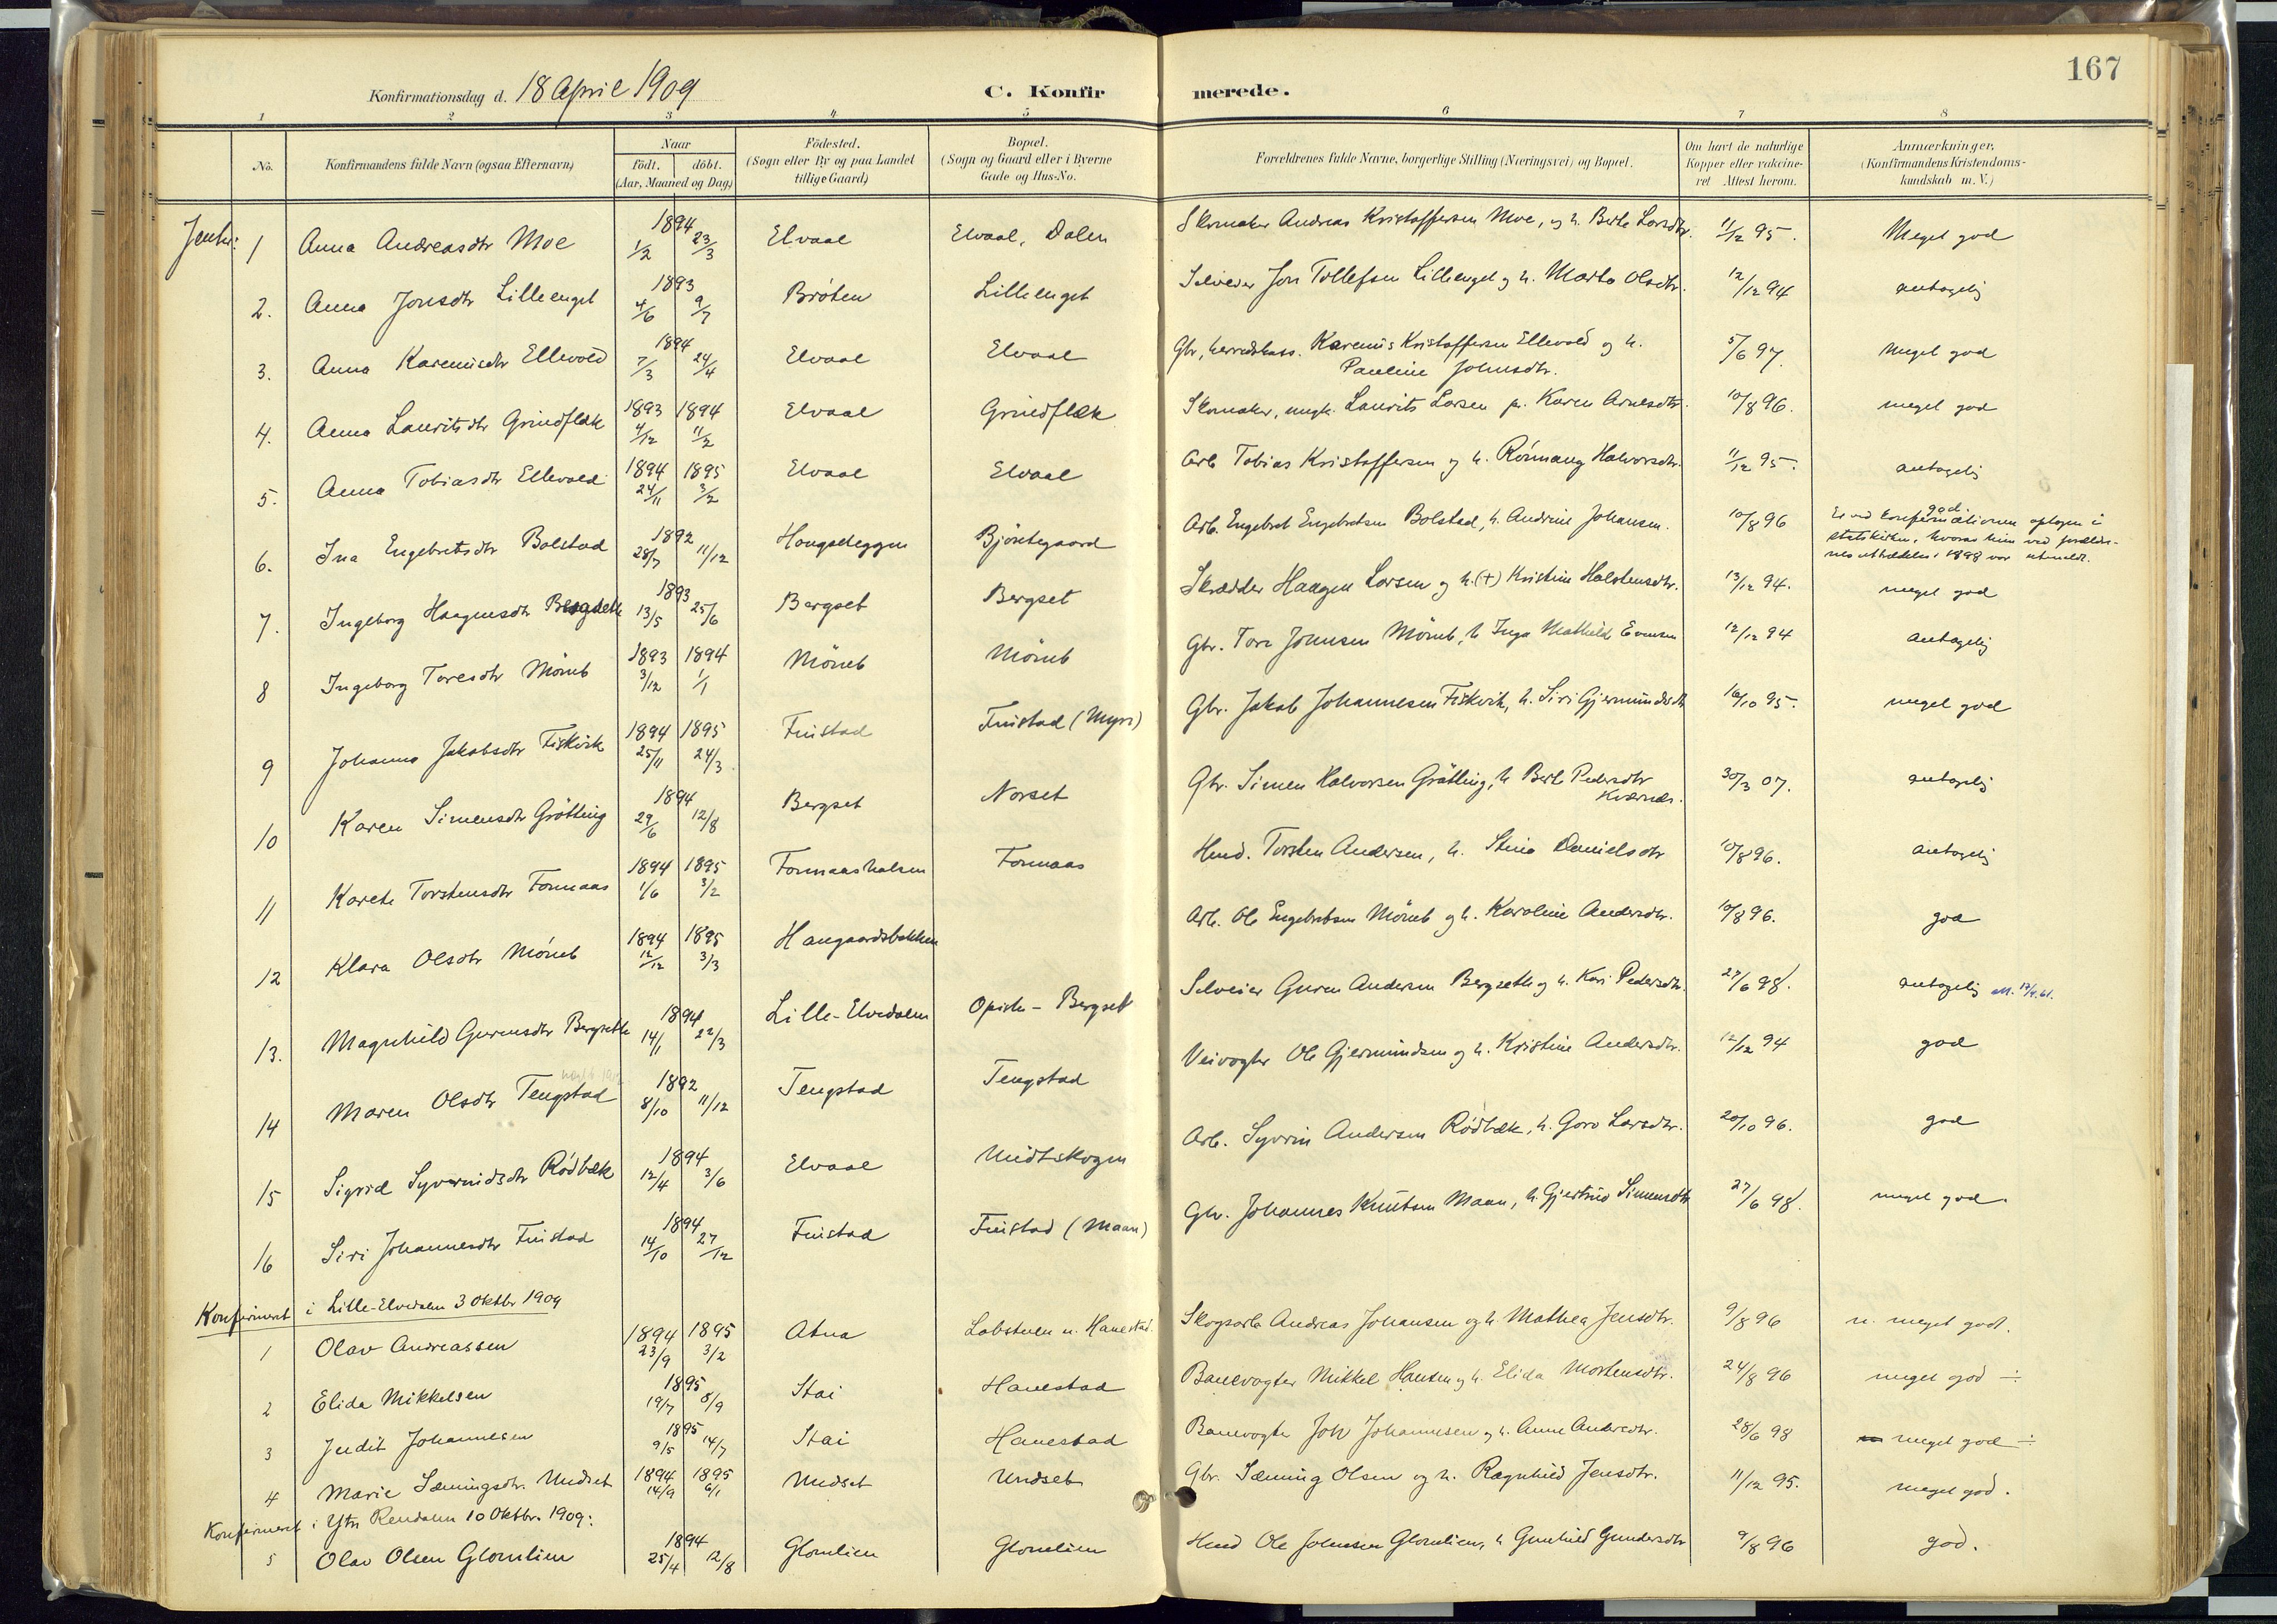 167
Konfirmationsdag d. 18 April 1909 C. Konfir merede.
1 2 3 4 5 6 7 8
No. Konfirmandens fulde Navn (ogsaa Efternavn) Naar födt. döbt. (Aar, Maaned og Dag) Födested. (Sogn eller By og paa Landet tillige Gaard) Bopæl. (Sogn og Gaard eller i Byerne Gade og Hus-No. Forældrenes fulde Navne, borgerlige Stilling (Næringsvei) og Bopæl. Om havt de naturlige Kopper eller vakcineret Attest herom. Anmærkninger. (Konfirmandens Kristendomskundskab m. V.)
Jenter: 1 Anna Andreasdtr Moe 1894 1/2 23/3 Elvaal Elvaal, Dalen Skomaker Andreas Kristoffersen Moe, og h. Berte Larsdtr. 11/12 95. Meget god
2. Anna Jonsdtr Lilleenget 1893 4/6 9/7 Bröten Lilleenget Selveier Jon Tollefsen Lilleenget og h. Marte Olsdtr. 12/12 94 antagelig
3. Anna Kareniusdtr Ellevold 1894 7/3 24/4 Elvaal Elvaal Gbr, herredskass. Karenius Kristoffersen Ellevold og h. Pauline Johnsdtr. 5/6 97. Meget god
4. Anna Lauritsdtr Grindflæk 1893 4/12 1894 11/2 Elvaal Grindflæk Skomaker, ungk. Laurits Larsen p. Karen Arnesdtr. 10/8 96. meget god
5. Anna Tobiasdtr Ellevold 1894 24/11 1895 3/2 Elvaal Elvaal Arb Tobias Kristoffersen og h. Rönnaug Halvorsdtr. 11/12 95. antagelig
6. Ina Engebretsdtr Bolstad 1892 28/7 11/12 Hougseteggen Bjöntegaard Arb. Engebret Engebretsen Bolstad, h. Andrine Johansen. 10/8 96 god. Er ved konfirmationen optagen i statskirken, hvoraf hun ved forældrenes uttrædelse i 1898 var utmeldt.
7. Ingeborg Haagensdtr Bergseth 1893 13/5 25/6 Bergset Bergset Skrædder Haagen Larsen og h. (+) Kristine Halstensdtr. 13/12 94. meget god
8 Ingeborg Toresdtr Möneb 1893 3/12 1894 1/1 Möneb Möneb Gbr. Tore Jonnsen Möneb, h Inga Mathilde Evensen 12/12 94 antagelig
9 Johanne Jakobsdtr Fiskvik 1894 25/11 1895 24/3 Finstad Finstad (Myre) Gbr. Jakob Johannesen Fiskvik, h. Siri Gjermundsdtr 16/10 95. meget god
10 Karen Simensdtr Grötting 1894 29/6 12/8 Bergset Norset Gbr. Simen Halvorsen Grötting, h Berte Pedersdtr Kværnæs. 30/3 07. antagelig
11 Karete Torstensdtr Formaas 1894 1/6 1895 3/2 Formaashalsen Formaas Husd. Torsten Andersen, h. Stina Danielsdtr 10/8 96. antagelig
12 Klara Olsdtr Möneb 1894 12/12 1895 3/3 Haugaardsbakken Arb. Ole Engebretsen Möneb og h. Karoline Andersdtr. 10/8 96. god
13. Magnhild Gurensdtr Bergseth 1894 14/1 22/3 Lille-Elvedalen Opistu-Bergset Selveier Guren Andersen Bergseth og h. Kari Pedersdtr. 27/6 98. antagelig att. 17/4.61.
14 Maren Olsdtr Tengstad 1892 8/10 11/12 Tengstad Tengstad Veivogter Ole Gjermundsen og h. Kristine Andersdtr. 12/12 94 god
15 Sigrid Syverinsdtr Rödbæk 1894 12/4 3/6 Elvaal Midtskogen Arb. Syvrin Andersen Rödbæk, h. Goro Larsdtr. 20/10 96. god
16 Siri Johannesdtr Finstad 1894 14/10 27/12 Finstad Finstad (Maan) Gbr. Johannes Knutsen Maan, h. Gjertrud Simensdtr 27/6 98. meget god.
Konfirmeret i Lille-Elvedalen 3 Oktbr 1909
1 Olav Andreassen 1894 23/9 1895 3/2 Atna Lobstuen n. Hanestad. Skogsarb Andreas Johansen og h. Mathea Jensdtr. 9/8 96 n. meget godt.
2 Elida Mikkelsen 1895 19/7 8/9 Stai Hanestad Banevogter Mikkel Hansen og h. Elida Mortensdtr. 24/8 96 meget god ÷
3 Judit Johannesen 1895 9/5 14/7 Stai Hanestad Banevogter Joh Johannesen og h. Anne Andersdtr. 28/6 98 meget god ÷
4 Marie Sæmingsdtr. Undset 1894 14/9 1895 6/1 Undset Undset Gbr. Sæming Olsen og h. Ragnhild Jensdtr. 11/12 95. meget god.
Konfirmeret i Ytre Rendalen 10 Oktbr. 1909:
5 Olav Olsen Glomlien 1894 25/4 12/8 Glomlien Glomlien Husd Ole Johnsen Glomlien, h Gunhild Gundersdtr 9/8 96 god.